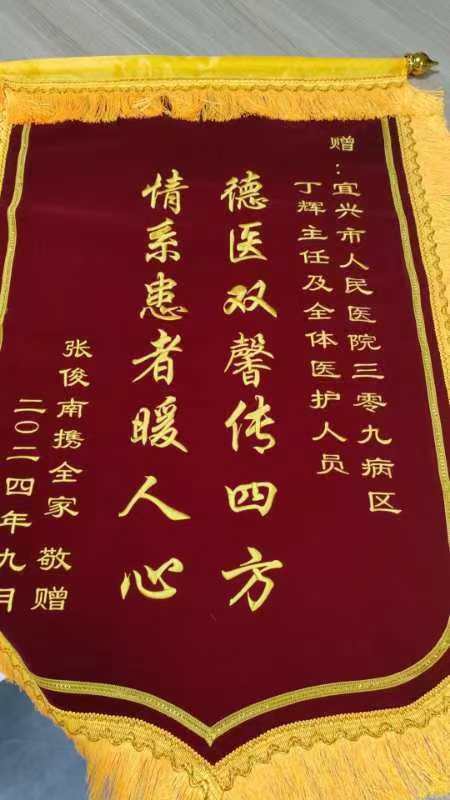 赠：宜兴市人民医院三零九病区
丁辉主任及全体医护人员
德医双馨传四方
情系患者暖人心
张俊南携全家 敬赠
二〇二四年九月